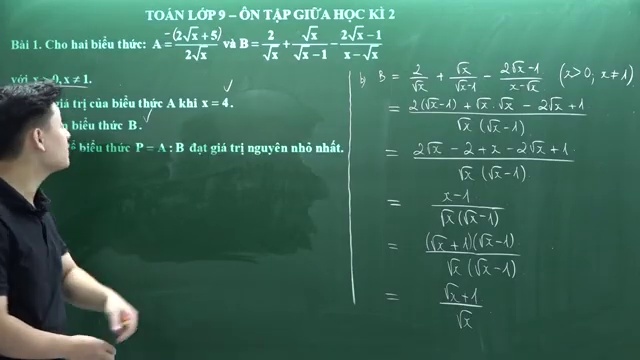 TOÁN LỚP 9 – ÔN TẬP GIỮA HỌC KÌ 2
Bài 1. Cho hai biểu thức: A = -(2√x + 5) / 2√x và B = 2/√x + √x/(√x − 1) − (2√x − 1)/(x − √x)
với x > 0, x ≠ 1.
giá trị của biểu thức A khi x = 4. ✓
biểu thức B. ✓
biểu thức P = A : B đạt giá trị nguyên nhỏ nhất.
b) B = 2/√x + √x/(√x−1) − (2√x−1)/(x−√x) (x>0; x≠1)
= (2(√x−1) + √x.√x − 2√x + 1) / (√x (√x−1))
= (2√x − 2 + x − 2√x + 1) / (√x (√x−1))
= (x−1) / (√x(√x−1))
= ((√x+1)(√x−1)) / (√x (√x−1))
= (√x+1) / √x